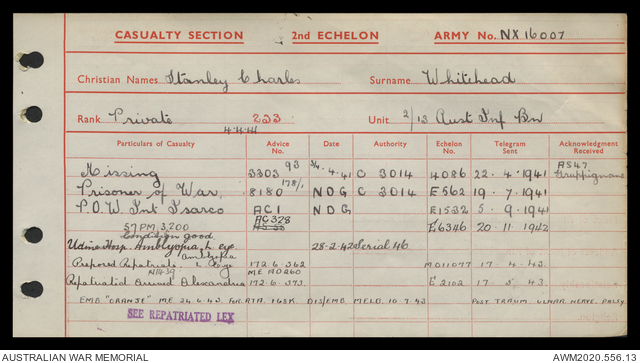 CASUALTY SECTION 2nd ECHELON ARMY No. NX 16007
Christian Names Stanley Charles Surname Whitehead
Rank Private 223 Unit 2/13 Aust Inf Bn
4.4.41
Particulars of Casualty Advice No. Date Authority Echelon No. Telegram Sent Acknowledgment Received
Missing 3303 93 3/4.4.41 C 3014 4086 22.4.1941 AS47
Prisoner of War 8180 178/1 NDG C 3014 E562 19.7.1941 Gruppignano
P.O.W. Int Isarco AC1 NDG E1532 5.9.1941
57 PM 3,200 AC 328 E6346 20.11.1942
Condition good
Udine Hosp. Amblyopia, L. eye. 28-2-42 Serial 46
Amblyopia
Prepared Repatriate L. Eye 172.6.362 M011077 17.4.43
N1439 ME
Repatriated Arrived Alexandria 172.6.373 E2102 17.5.43
EMB "ORANJE" ME 24.6.43 DIS/EMB MELB. 10.7.43 POST TRAUM. ULNAR NERVE PALSY.
SEE REPATRIATED LEX
AUSTRALIAN WAR MEMORIAL AWM2020.556.13